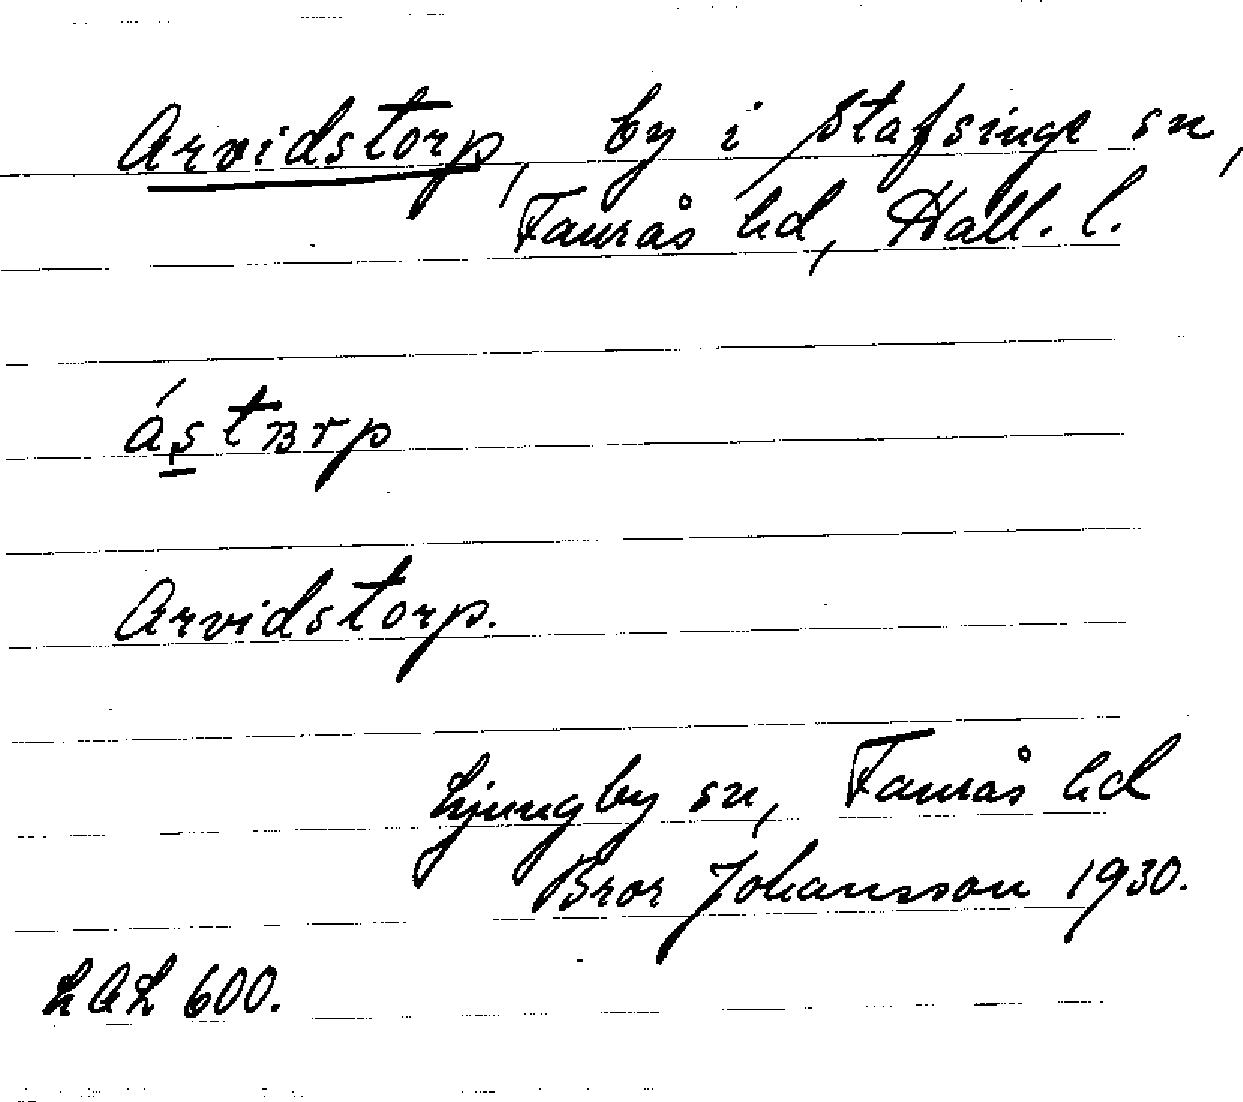 Arvidstorp, by i Stafsinge sn,
Faurås hd, Hall. l.
Arvidstorp.
Ljungby sn, Faurås hd
Bror Johansson 1930.
LAL 600.